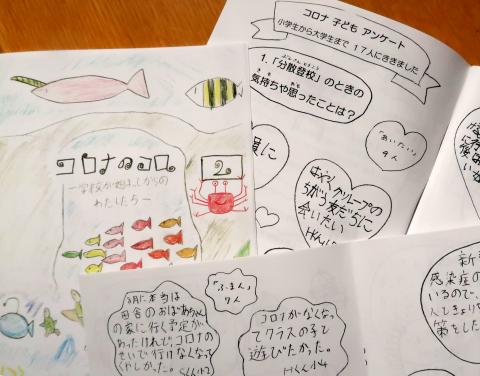 コロナのコロ
2。
コロナ 子ども アンケート
小学生から大学生まで 17人にききました
1.「分散登校」のときの
気持ちや思ったことは?
「あいたい」
9人
員に
はやくグループの
ちがう友だちに
会いたい
「ふまん」
7人
8月に本当は
田舎のおばあちゃん
の家に行く予定が
あったけれど、コロナの
せいで行けなくなって
くやしかった。
コロナがなくなっ
てクラスの子と
遊びたかった。
Hくん小4
新
感染症の
いるので、
策をした